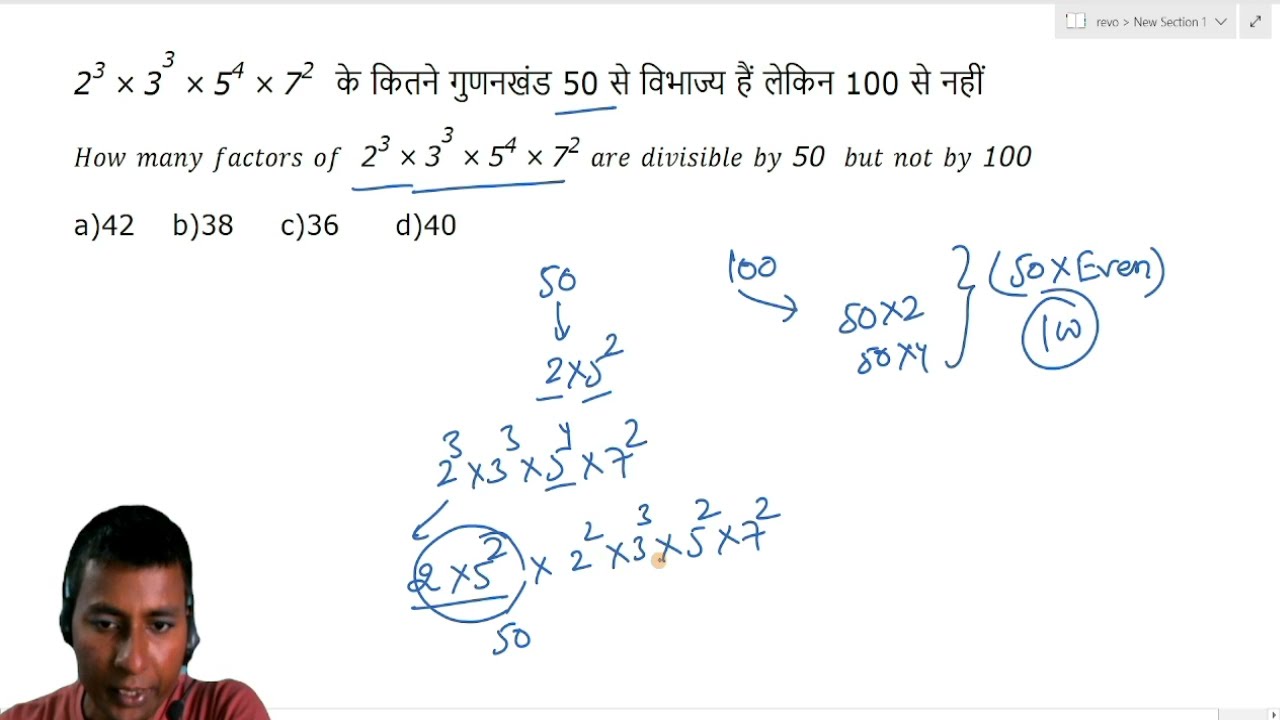 revo > New Section 1
2³ × 3³ × 5⁴ × 7² के कितने गुणनखंड 50 से विभाज्य हैं लेकिन 100 से नहीं
How many factors of 2³ × 3³ × 5⁴ × 7² are divisible by 50 but not by 100
a)42 b)38 c)36 d)40
50
100
(50×Even)
50×2
100
50×4
2×5²
2³×3³×5⁴×7²
2×5² × 2²×3³×5²×7²
50